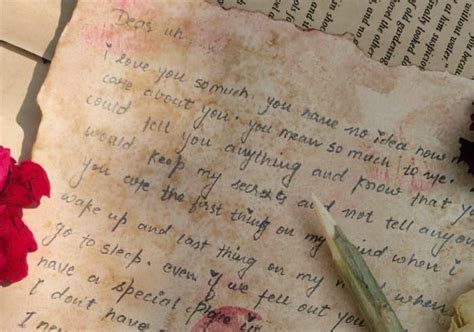 Dear
i love you so much. you have no idea how m
care about you. you mean so much to me.
could tell you anything and know that y
would keep my secrets and not tell anyon
you are the first thing on my mind when i
wake up and last thing on my when
go to sleep. even if we fell out you
have a special place in
I don't have
I ne
without water."
can finally looked d
him suspicio
of old gardening
ood the other,
and no